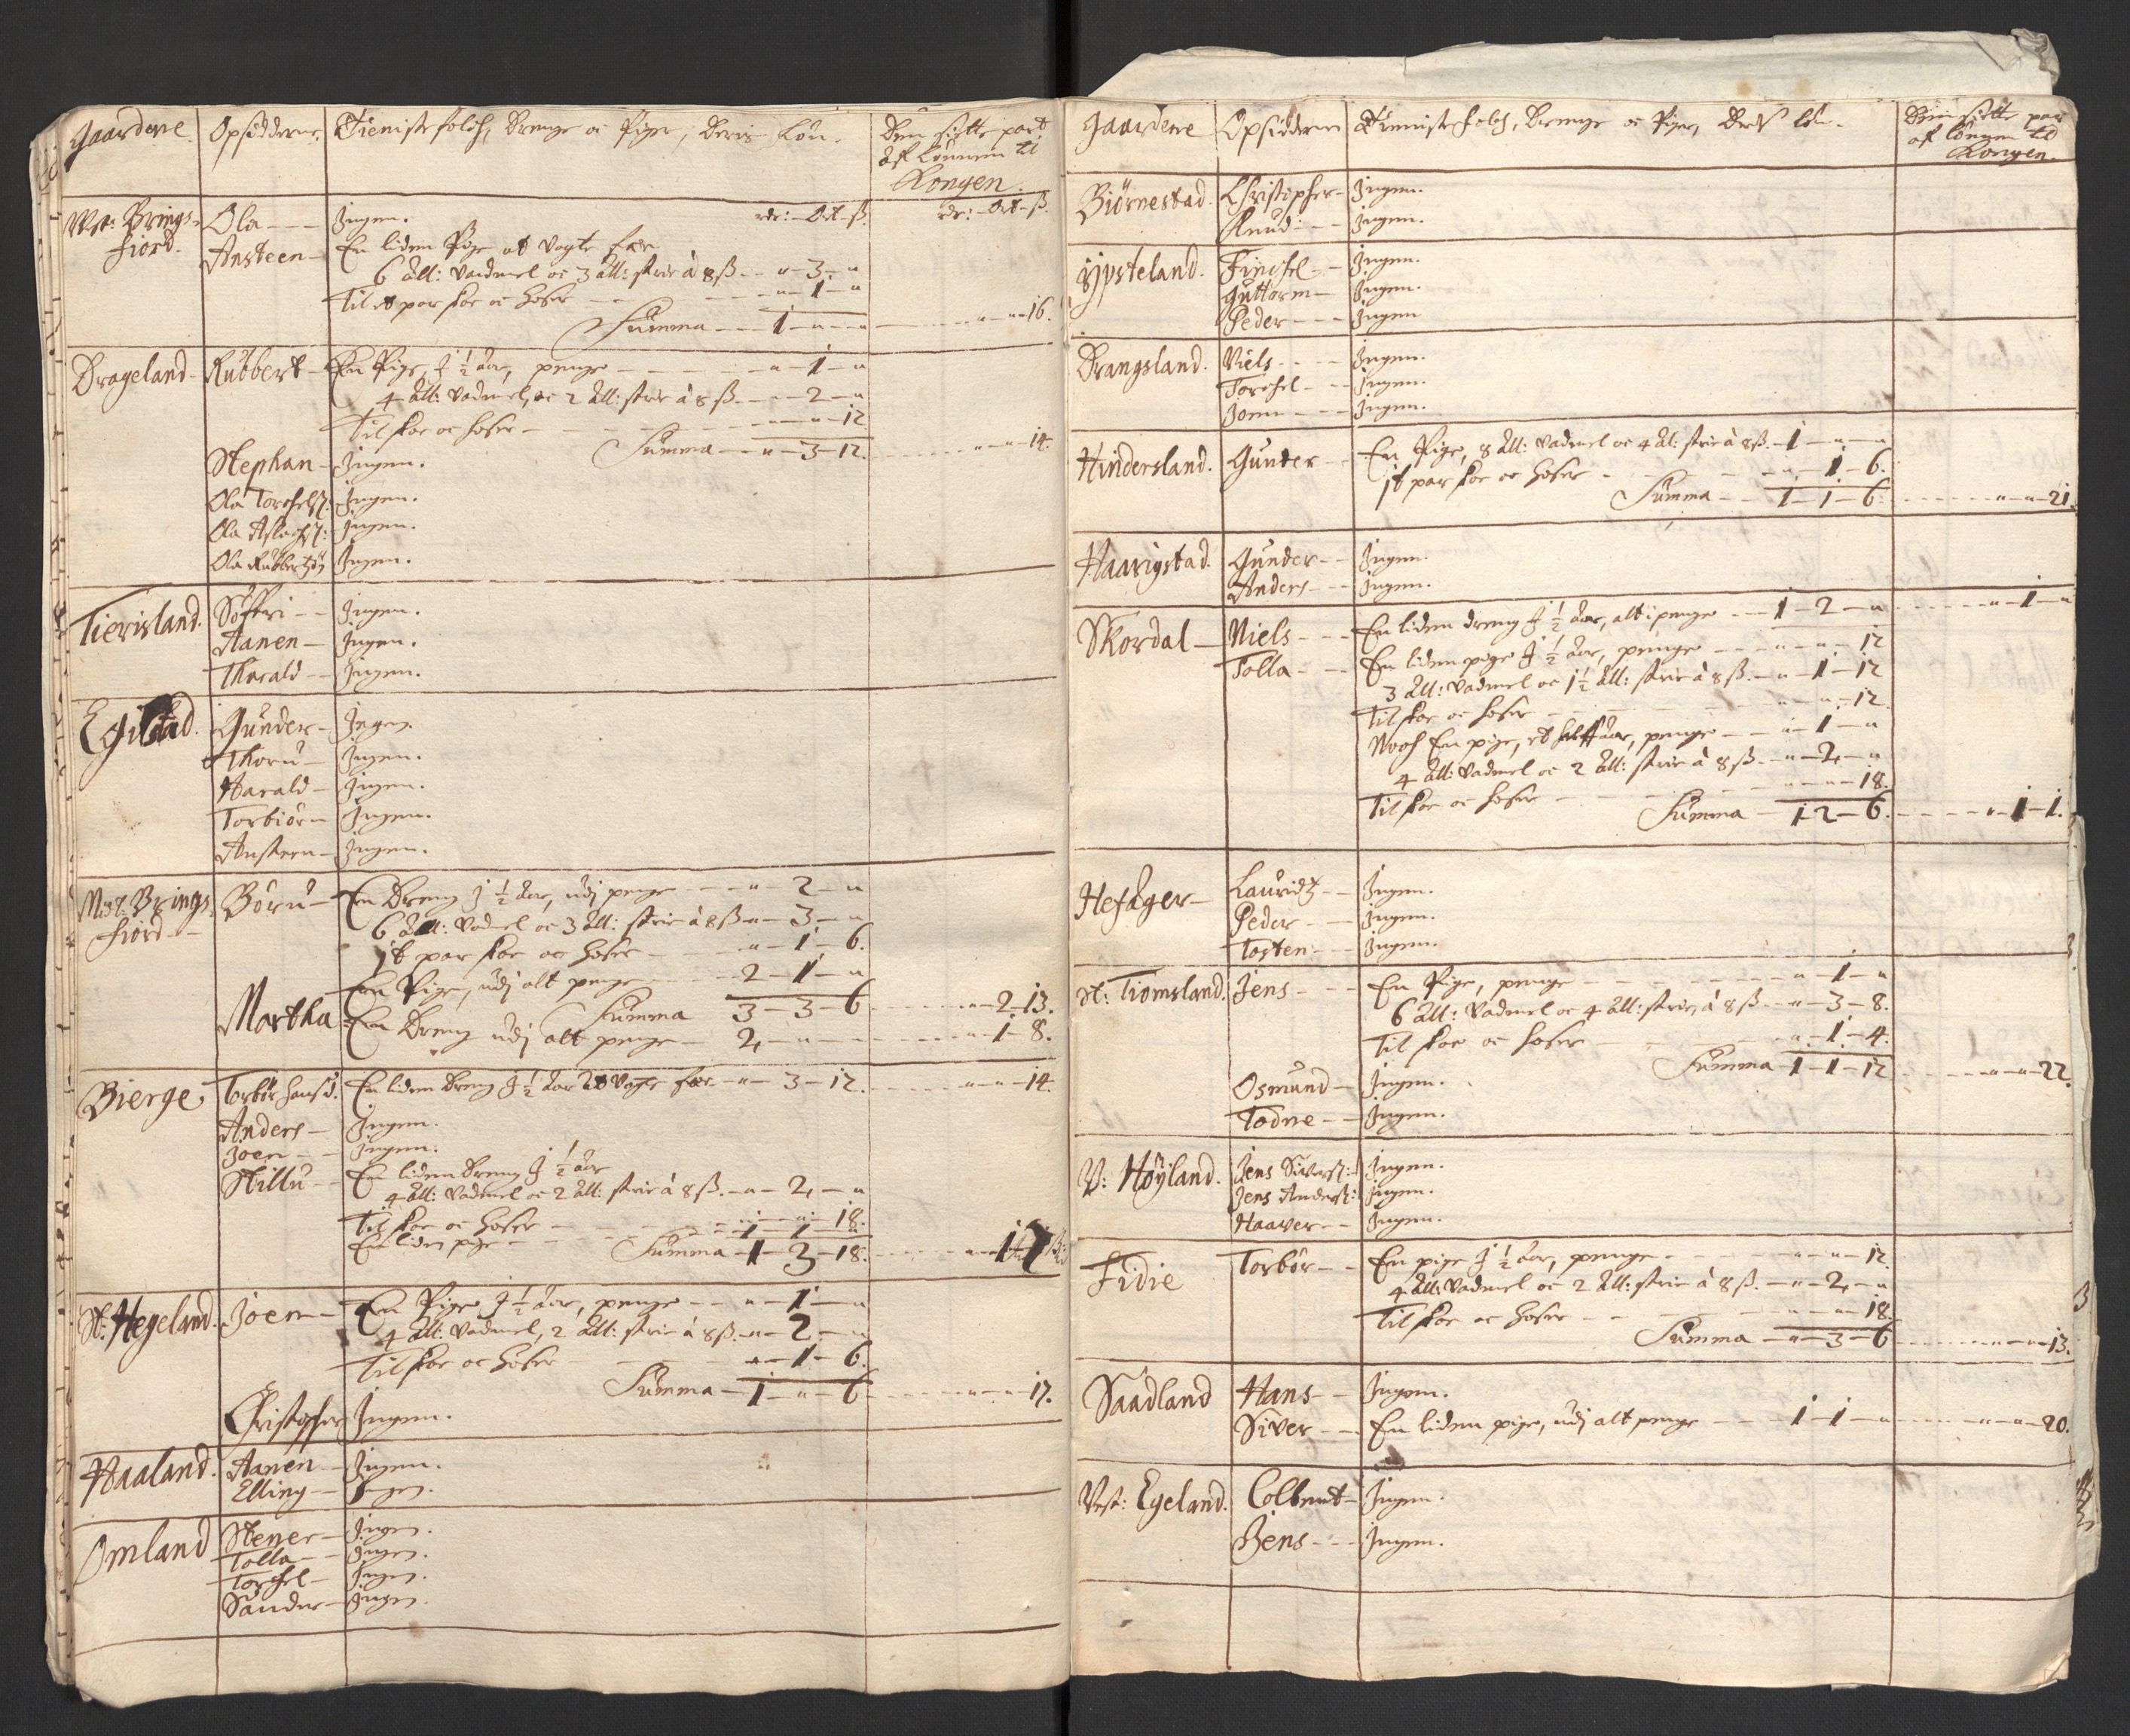 Gaardene Opsidderne Tieniste folch, Drenge oc Piger, Deris Løn. Den siette part
af Lønnen til
Kongen.
rdr: - Ort - ß. rdr: - Ort - ß.
Vest: Brings- Ola - - - Ingen.
fiord. Ansteen - En liden Pige at vogte fær
6 all: vadmel oc 3 all: strie à 8 ß - - " - 3 - "
Til et par skoe oc hoser - - - - - " - 1 - "
Summa - - 1 - " - " - - - " - " - 16.
Drageland - Rubbert - En Pige, J ½ Aar, penge - - - - " - 1 - "
4 all: vadmel, oc 2 all: strie à 8 ß - - - 2 - "
Til skoe oc hoser - - - - - " - 12
Summa - - " - 3 - 12. - - - " - " - 14.
Stephan - Ingen.
Ola Torchelß: Ingen.
Ola Aslachß: Ingen.
Ola Rubbertzøn Ingen.
Tierisland. Søffri - - Ingen.
Aanen - Ingen.
Tharald - Ingen.
Egilstad. Gunder - Ingen.
Thoru - Ingen.
Harald - Ingen.
Torbiørn Ingen.
Ansteen - Ingen.
Midt: Brings Børu - En Dreng J ½ Aar, udj penge - - - " - 2 - "
fiord - - 6 all: Vadmel oc 3 all: strie à 8 ß - " - 3 - "
1 t par skoe oc hoser - - - " - 1 - 6.
En Pige, udj alt penge - - - 2 - 1 - "
Summa 3 - 3 - 6 - - - " - 2. 13.
Martha En Dreng udj alt penge - 2 - " - " - - - " - 1 - 8.
Bierge Torbør En liden Dreng J ½ Aar at Vogte fær - " - 3 - 12. - - - " - " - 14.
Anders - Ingen.
Joen - - Ingen.
Stillu - - En liden Dreng J ½ Aar
4 all: Vadmel oc 2 all: strie à 8 ß. - " - 2 - "
Til skoe oc hoser - - - - " - " - 18.
En liden pige - - - 1 - 1 - "
Summa - 1 - 3 - 18.
St: Hegeland. Joen - En Pige J ½ Aar, penge - - " - 1 - "
4 all: Vadmel, 2 all: strie à 8 ß. - " - 2 - "
Til skoe oc hoser - - - " - 1 - 6.
Summa - 1 - " - 6 - - - " - " - 17.
Christopher Ingen.
Haaland. Aanen - Ingen.
Elling - Ingen.
Omland Stener - Ingen.
Tolla - - Ingen.
Torchel - Ingen.
Sander - Ingen.
Gaardene Opsidderne Tieniste folch, Drenge oc Piger, Deris løn. Den siette par
af lønnen til
Kongen.
Biørnestad. Christopher - Ingen.
Knud - - Ingen.
Ypsteland. Finchel - - Ingen.
Guttorm - Ingen.
Peder - - - Ingen
Drangsland. Niels - - - Ingen.
Torchel - - Ingen.
Joen - - - Ingen.
Hindersland. Gunder - - En Pige, 8 all: Vadmel oc 4 al: strie à 8 ß. - 1 - " - "
1 t par skoe oc hoser - - - " - 1 - 6.
Summa - - 1 - 1 - 6. - - - " - " - 21.
Haarigstad. Gunder - - Ingen.
Anders - - Ingen.
Skordal - Niels - - - En liden dreng J ½ Aar, alt i penge - - 1 - 2 - " - - - " - 1 - "
Tolla - - En liden pige J ½ Aar, penge - - - " - " - 12
3 all: Vadmel oc 1½ all: strie à 8 ß. - " - 1 - 12
Til skoe oc hoser - - - - " - " - 12.
Noch En pige, et halff Aar, penge - - " - 1 - "
4 all: Vadmel oc 2 all: strie à 8 ß. - " - 2 - "
Til skoe oc hoser - - - - " - " - 18.
Summa - 1 - 2 - 6. - - - " - 1 - 1.
Hesager - Lauridtz - - Ingen.
Peder - - Ingen.
Tosten - - Ingen.
St: Tiomsland. Jens - - - En Pige, penge - - - - " - 1 - "
6 all: Vadmel oc 4 all: strie, à 8 ß. - " - 3 - 8.
Til skoe oc hoser - - - " - 1 - 4.
Summa - 1 - 1 - 12 - - - " - " - 22.
Osmund - Ingen.
Todne - - Ingen.
V: Høyland. Jens Siverß: Ingen.
Jens Anderß: Ingen.
Haaver - - Ingen.
Fidie Torbør - - En pige J ½ Aar, penge - - - " - " - 12.
4 all: Vadmel oc 2 all: strie à 8 ß. - " - 2 - "
Til skoe oc hoser - - - " - " - 18.
Summa - " - 3 - 6 - - - " - " - 13.
Saadland Hans - - Ingen.
Siver - - En liden pige, udj alt penge - - - 1 - 1 - " - - - " - " - 20.
Vest: Egeland. Colbent - Ingen.
Jens - - - Ingen.